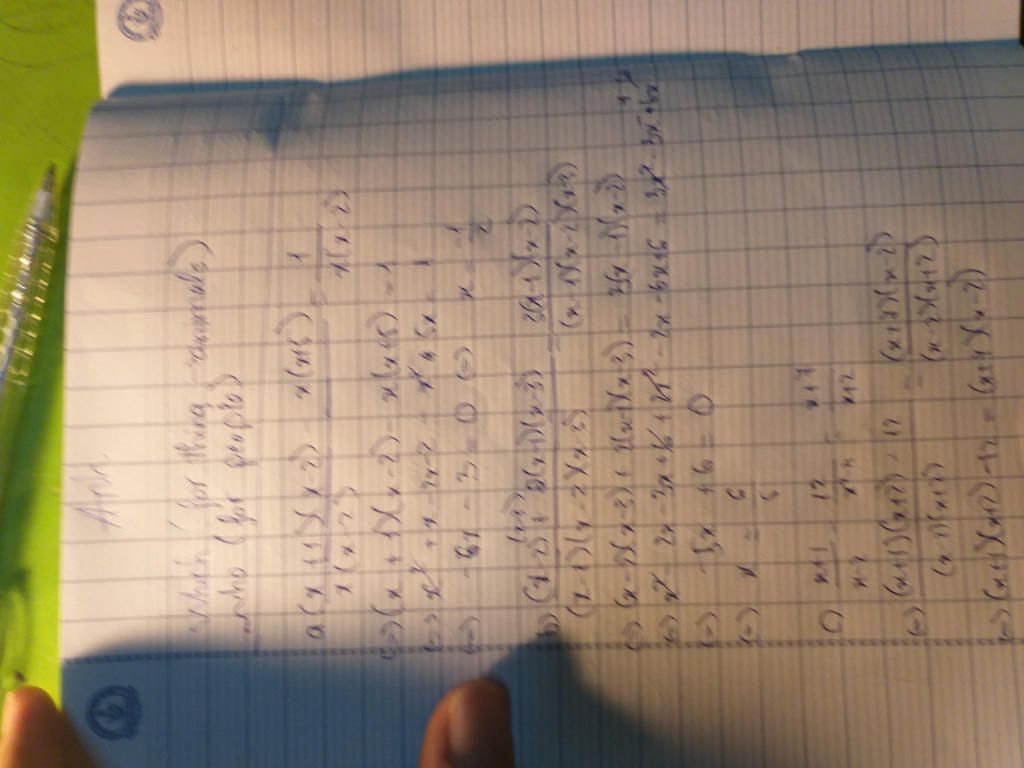 Anh
which (for thing - animals)
who (for people)
a (x+1)(x-2) - x(x+5) = 1
x(x-2) x(x-2)
(=) (x+1)(x-2) - x(x+5) = 1
(=) x² + x - 2x - 2 - x² + 5x = 1
(=) -6x - 3 = 0 (=) x = -1/2
b) (x-2)(x-3) + 2(x-1)(x-3) = 3(x-1)(x-2)
(x-1)(x-2)(x-3) (x-1)(x-2)(x-3)
(=) (x-2)(x-3) + 2(x-1)(x-3) = 3(x-1)(x-2)
(=) x² - 2x - 3x + 6 + 2x² - 2x - 6x + 6 = 3x² - 3x - 6x
(=) -5x + 6 = 0
(=) x = 6/5
c) x+1/x-2 - 12/x²-4 = x+1/x+2
(=) (x+1)(x+2) - 12 = (x+1)(x-2)
(x-2)(x+2) (x-2)(x+2)
(=) (x+1)(x+2) - 12 = (x+1)(x-2)